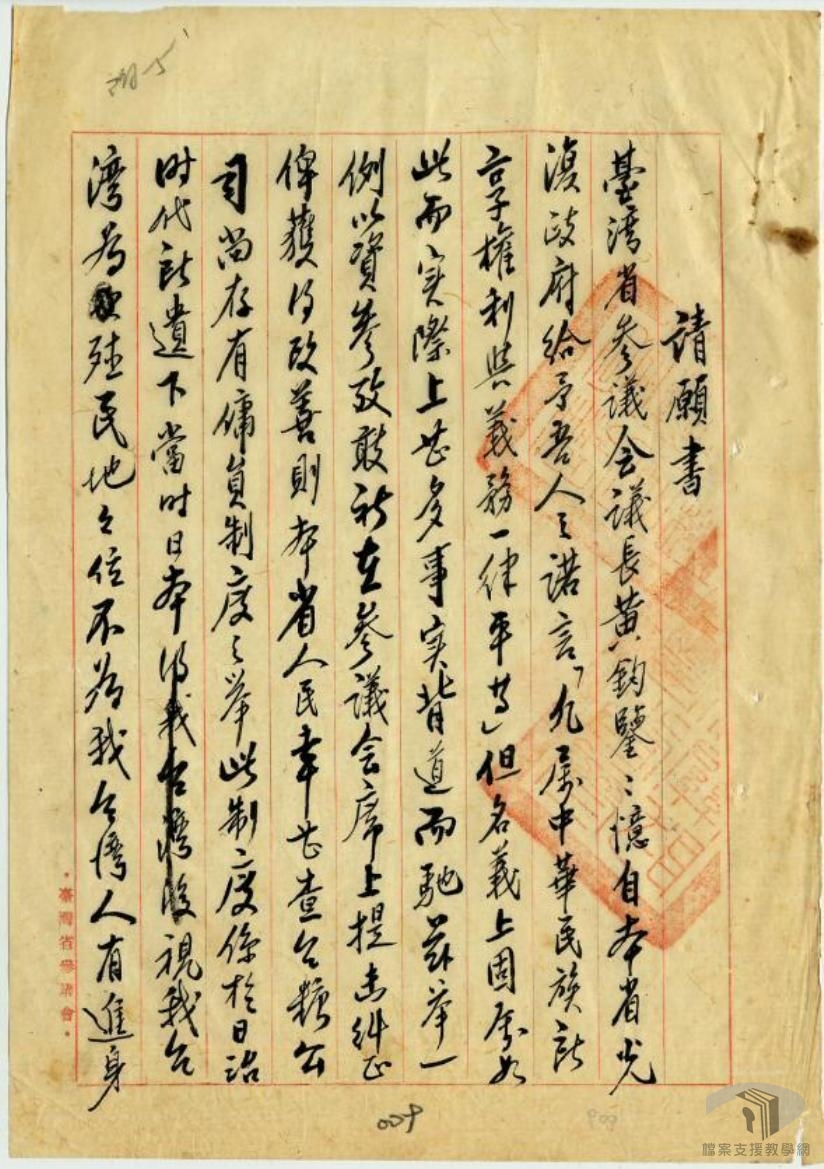 請願書
臺湾省参議会議長黄鈞鑒:憶自本省光
復政府給予吾人之諾言「凡属中華民族所
享權利與義務一律平等」但名義上固属如
此而实際上甚多事实背道而馳茲举一
例以資参攷敢祈在参議会席上提出糾正
俾獲得改善則本省人民幸甚查台糖公
司尚存有傭員制度之举此制度係於日治
时代所遺下當时日本得我台灣後視我台
湾為殖民地之位不為我台湾人有進身
臺灣省參議會
009
檔案支援教學網